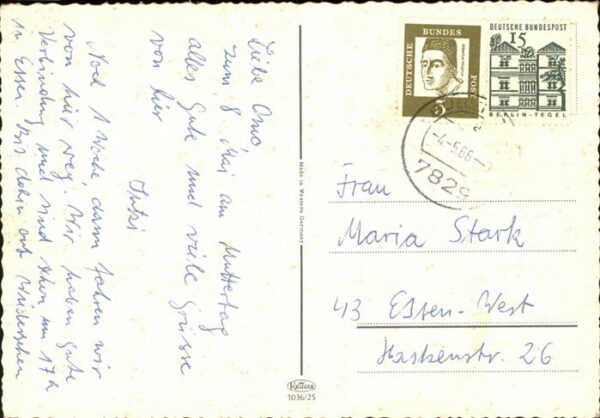 Liebe Oma
zum 8 Mai am Muttertag
alles Gute und viele Grüsse
von hier
Noch 1 Woche, dann fahren wir
von hier weg. Wir haben gute
Verbindung und sind schon um 17h
in Essen. Bis dahin auf Wiedersehen
DEUTSCHE BUNDESPOST
5
DEUTSCHE BUNDESPOST
15
BERLIN-TEGEL
-4.-5.66-
7829
Made in Western Germany
Frau
Maria Stark
43 Essen-West
26
KRÜGER
1036/25